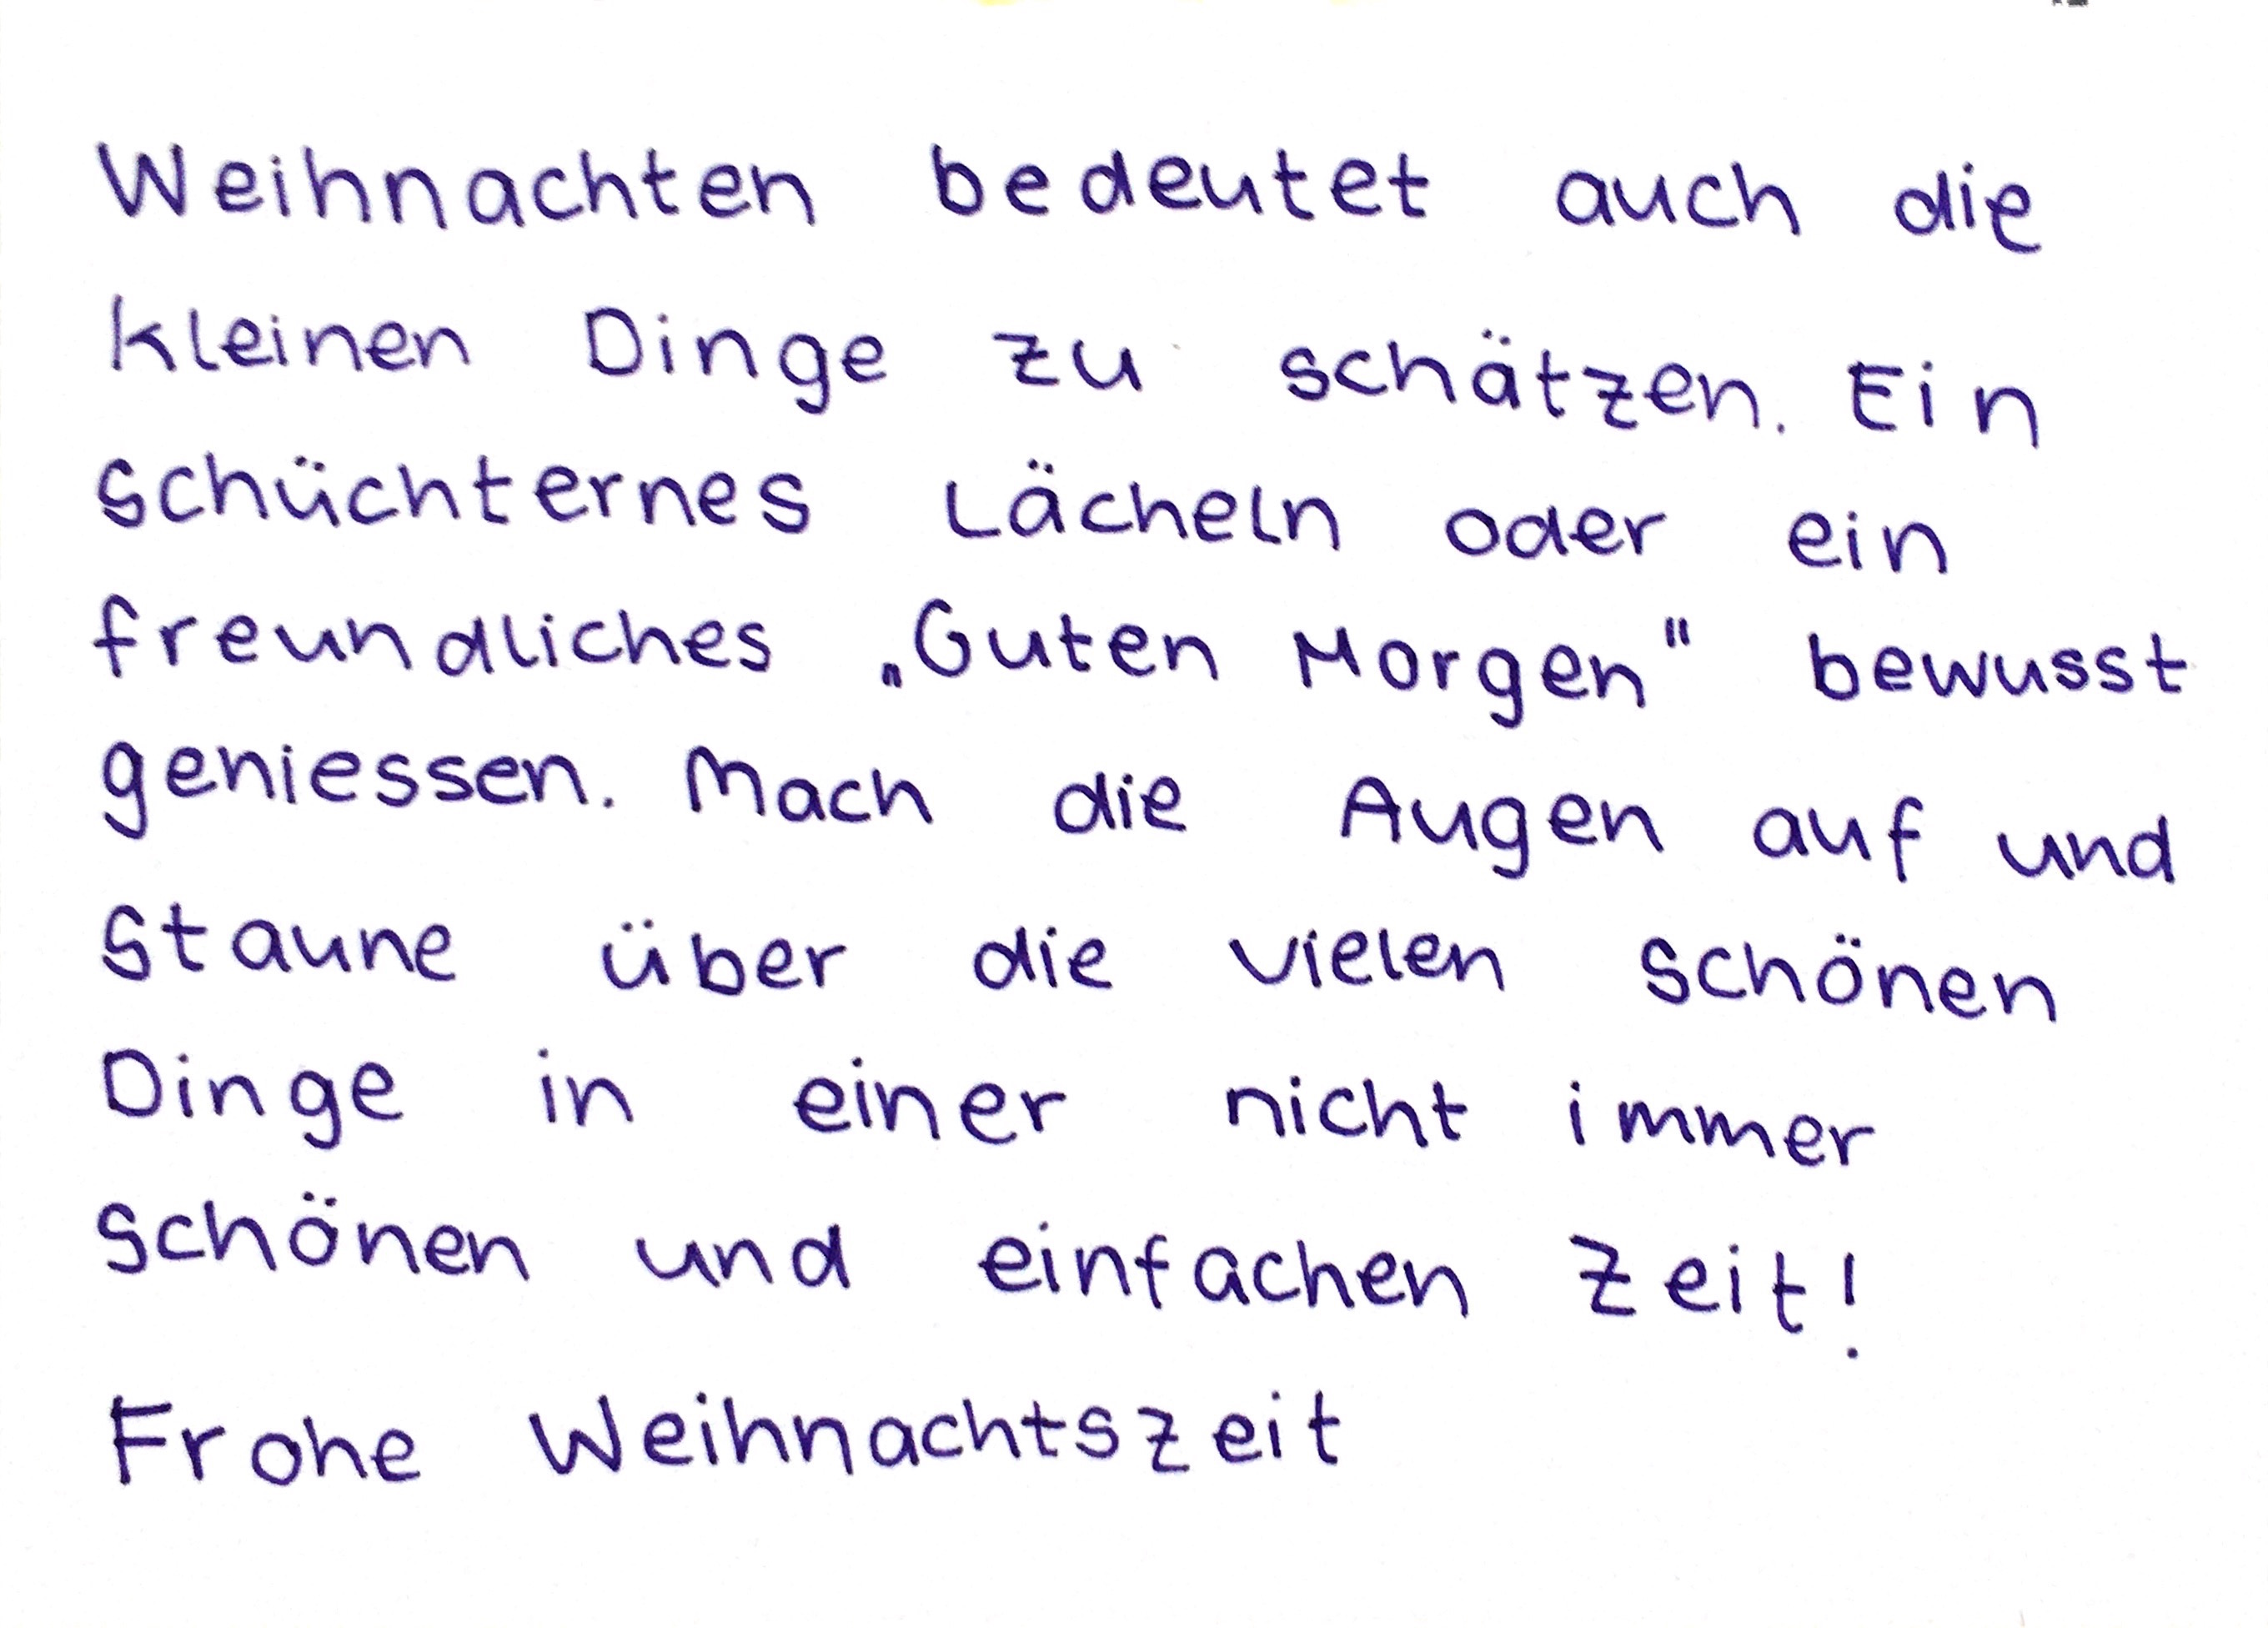 Weihnachten bedeutet auch die
kleinen Dinge zu schätzen. Ein
schüchternes Lächeln oder ein
freundliches „Guten Morgen" bewusst
geniessen. Mach die Augen auf und
staune über die vielen schönen
Dinge in einer nicht immer
schönen und einfachen Zeit!
Frohe Weihnachtszeit